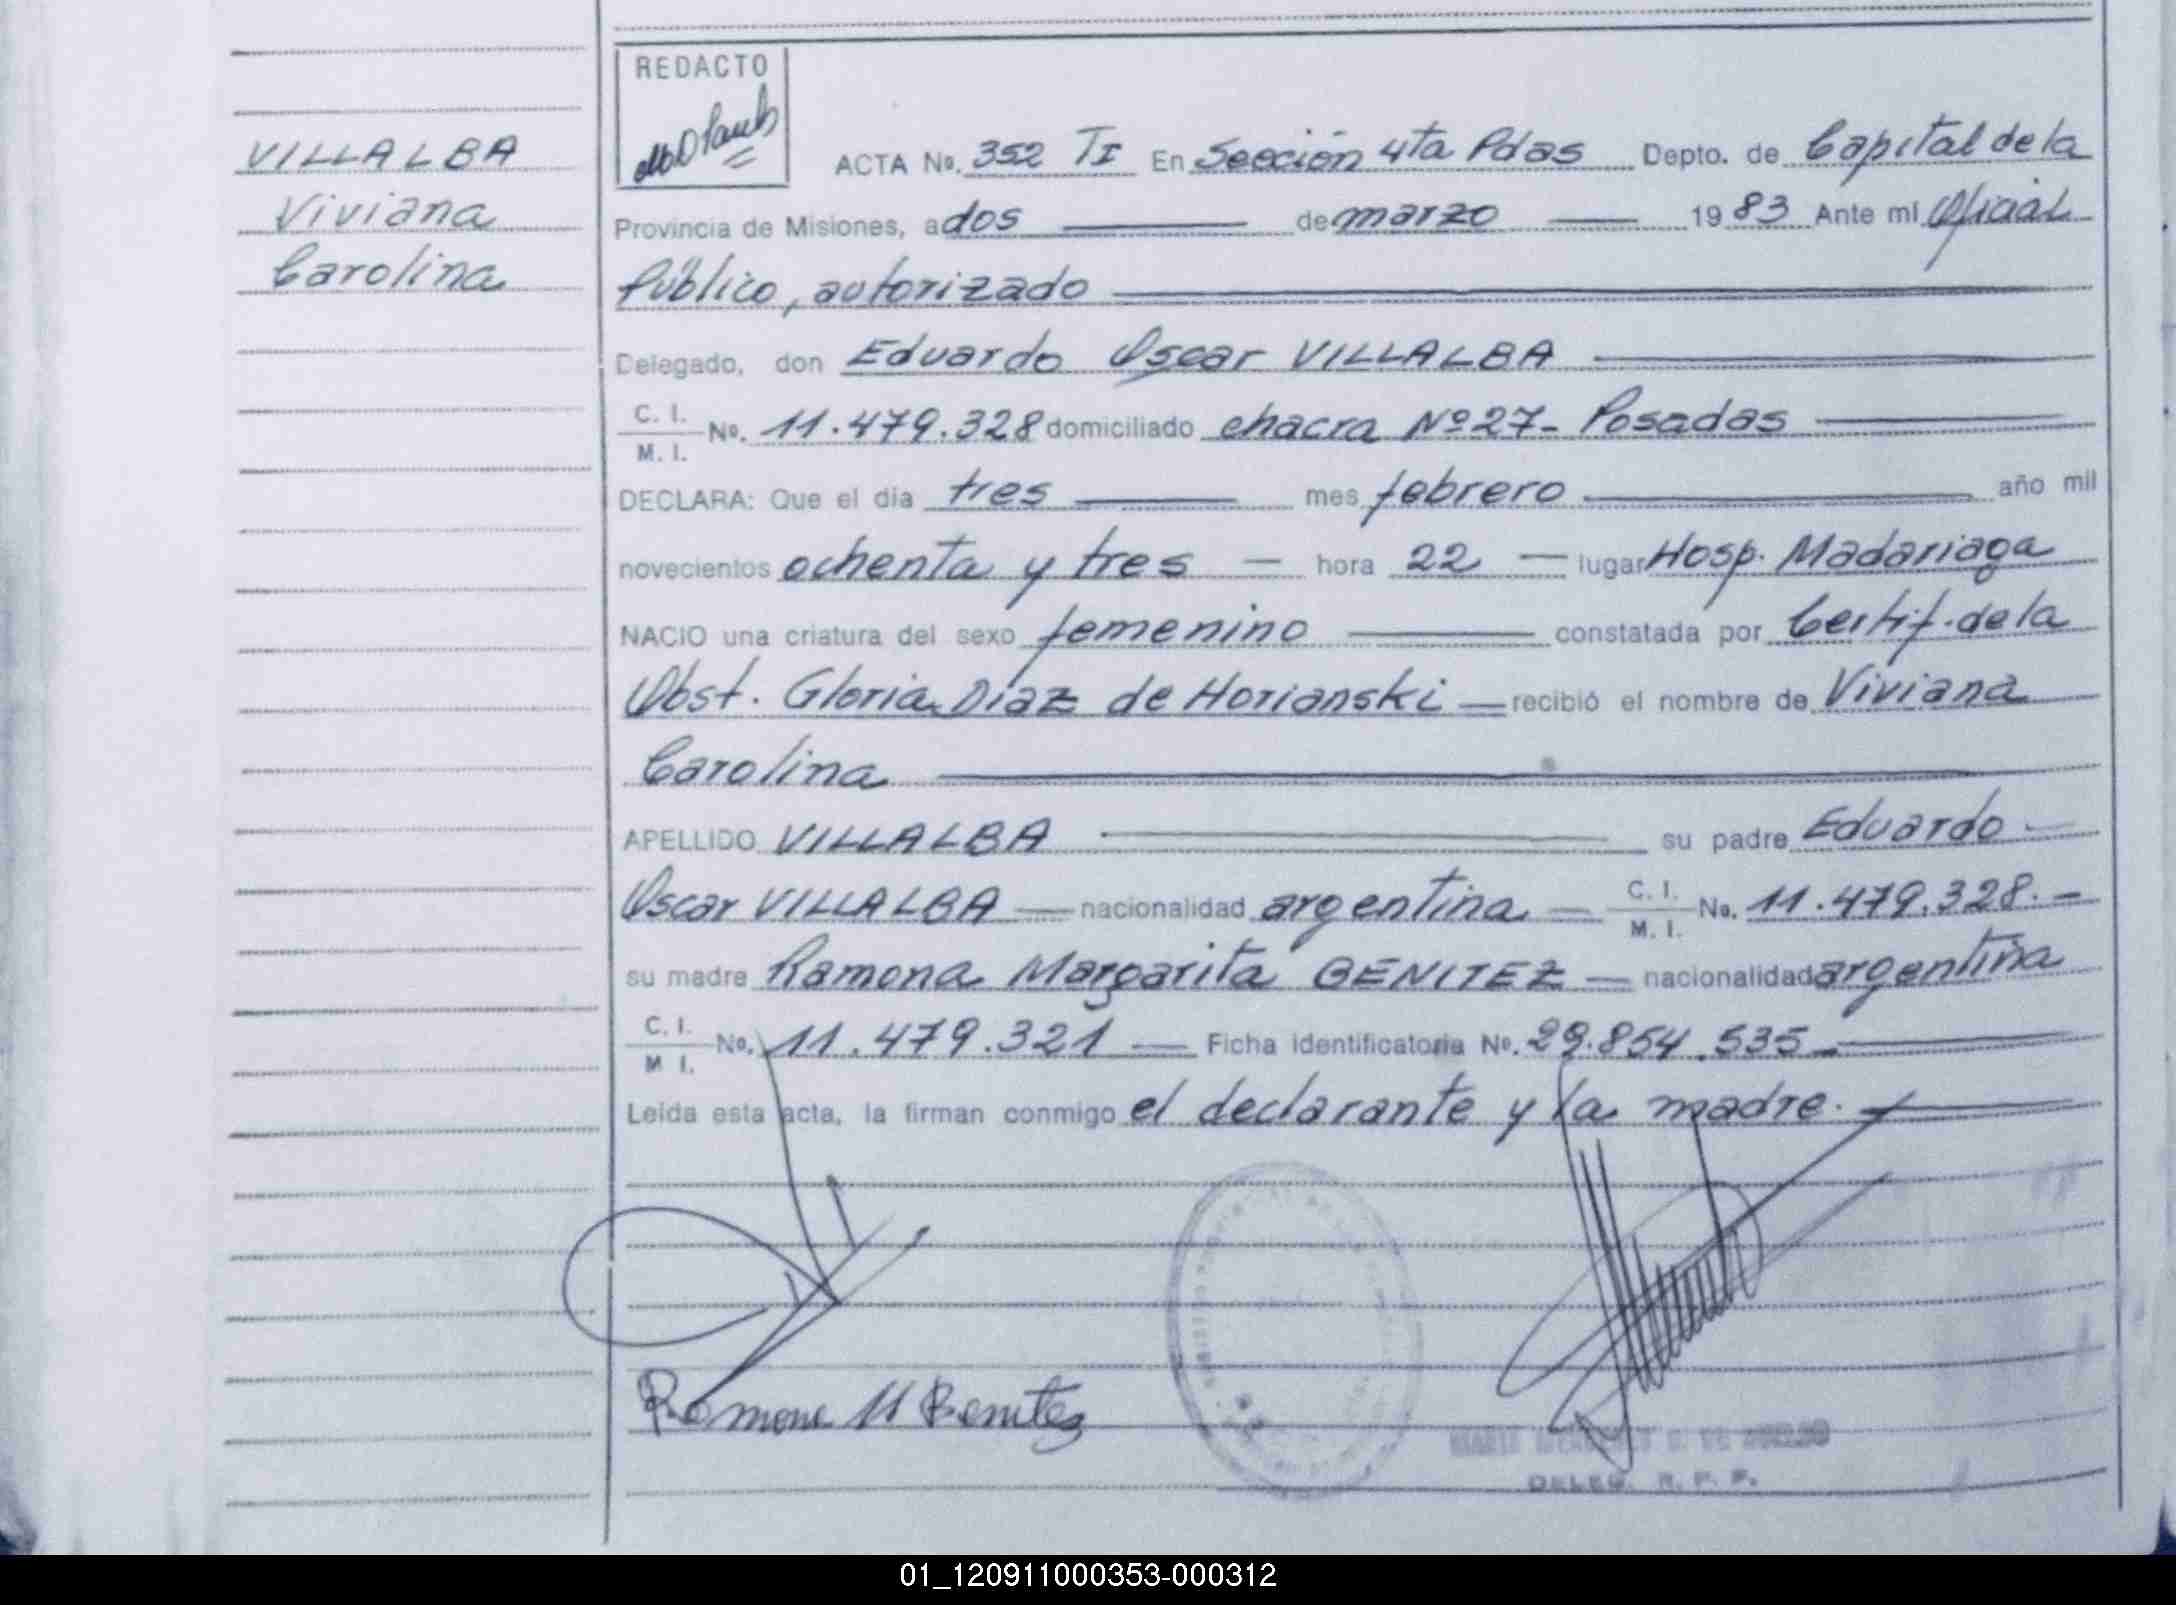 VILLALBA
Viviana
Carolina
REDACTO
ACTA No. 352 TI En Sección 4ta Pdas Depto. de Capital de la
Provincia de Misiones, a dos de marzo 1983 Ante mí Oficial
Público, autorizado
Delegado, don Eduardo Oscar VILLALBA
C. I.
M. I. No. 11.479.328 domiciliado chacra Nº 27- Posadas
DECLARA: Que el día tres mes febrero año mil
novecientos ochenta y tres — hora 22 — lugar Hosp. Madariaga
NACIO una criatura del sexo femenino constatada por Certif. de la
Obst. Gloria Díaz de Horianski — recibió el nombre de Viviana
Carolina
APELLIDO VILLALBA su padre Eduardo —
Oscar VILLALBA — nacionalidad argentina — C. I. M. I. No. 11.479.328. -
su madre Ramona Margarita BENITEZ — nacionalidad argentina
C. I.
M I. No. 11.479.321 — Ficha identificatoria No. 29.854.535
Leída esta acta, la firman conmigo el declarante y la madre.
Ramona M Benitez
DELEG. R. P. P.
01_120911000353-000312